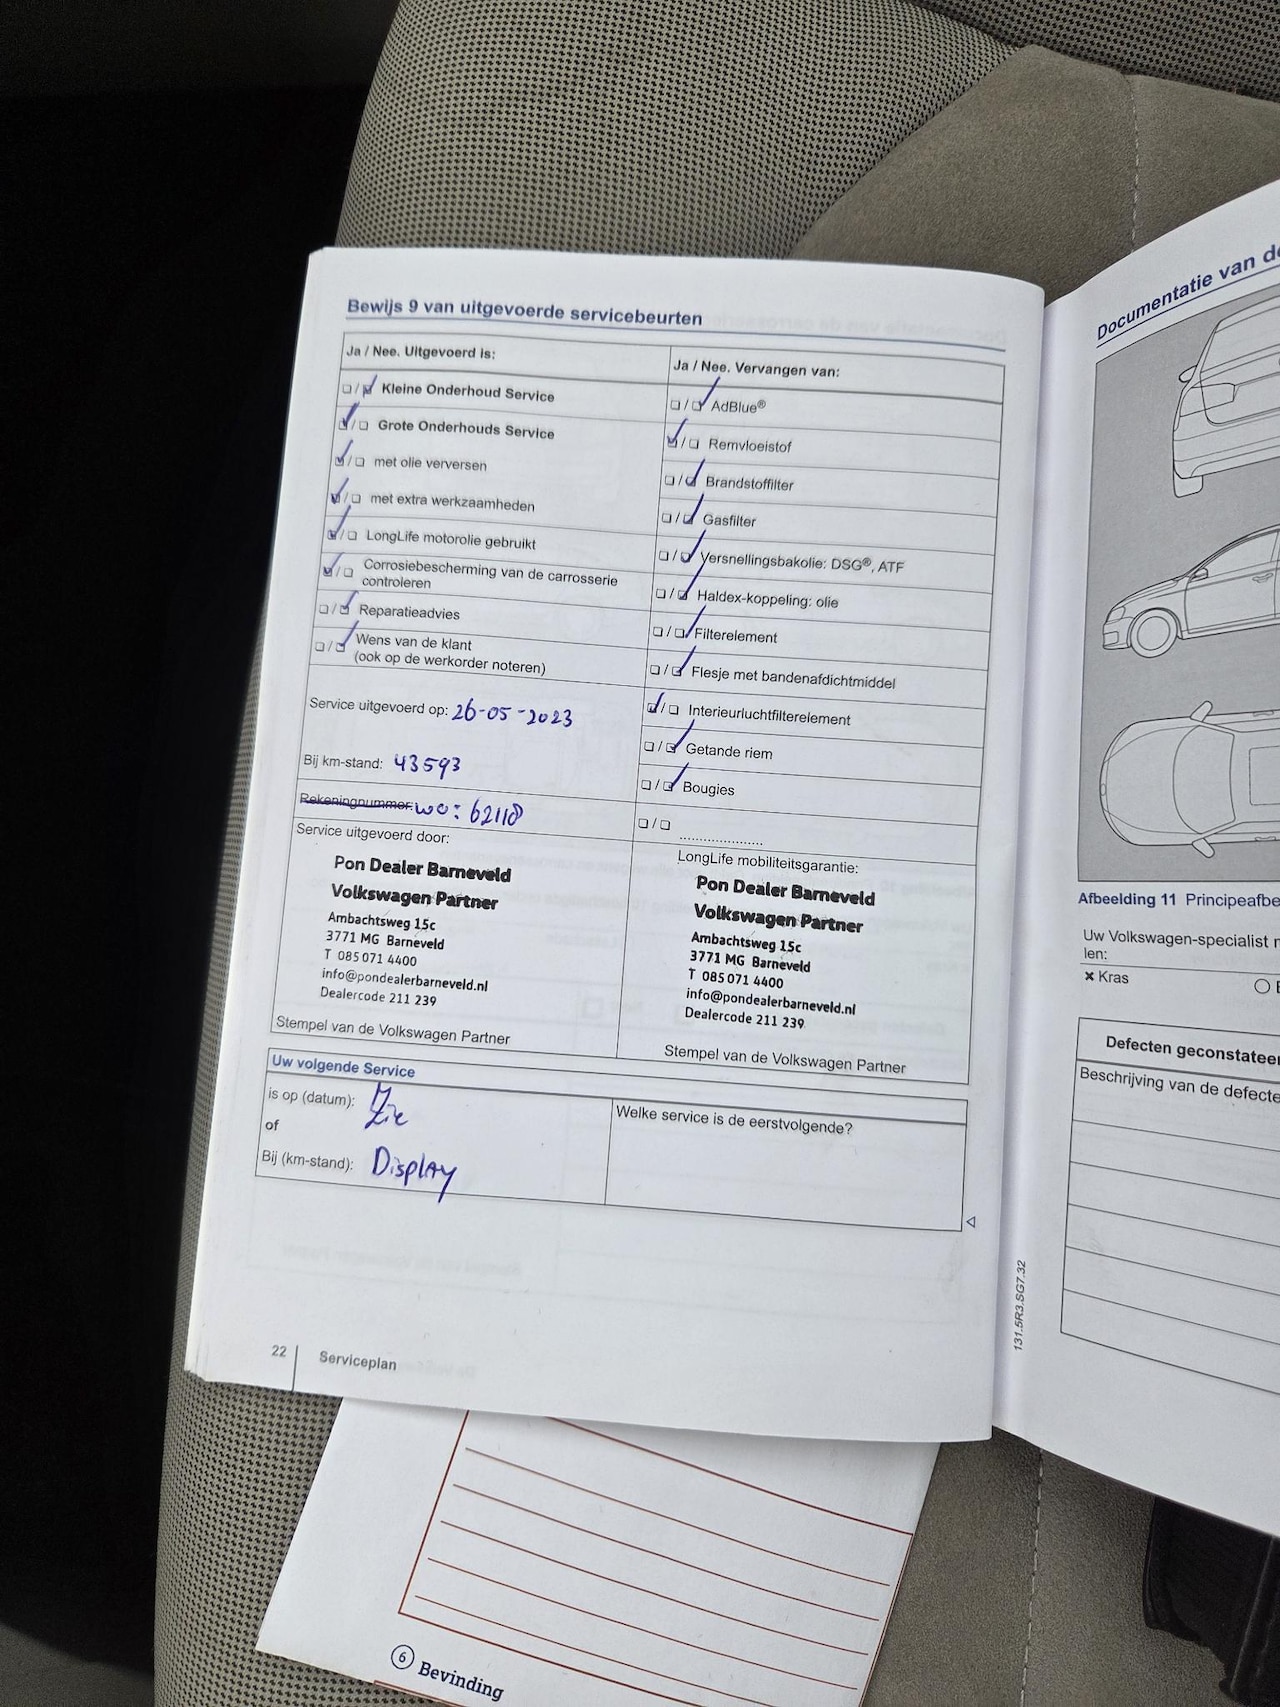 Bewijs 9 van uitgevoerde servicebeurten
Ja / Nee. Uitgevoerd is:
Kleine Onderhoud Service
Grote Onderhouds Service
met olie verversen
met extra werkzaamheden
LongLife motorolie gebruikt
Corrosiebescherming van de carrosserie
controleren
Reparatieadvies
Wens van de klant
(ook op de werkorder noteren)
Service uitgevoerd op: 26-05-2023
Bij km-stand: 43593
Rekeningnummer: wo: 62118
Service uitgevoerd door:
Pon Dealer Barneveld
Volkswagen Partner
Ambachtsweg 15c
3771 MG Barneveld
T 085 071 4400
info@pondealerbarneveld.nl
Dealercode 211 239
Stempel van de Volkswagen Partner
Ja / Nee. Vervangen van:
AdBlue®
Remvloeistof
Brandstoffilter
Gasfilter
Versnellingsbakolie: DSG®, ATF
Haldex-koppeling: olie
Filterelement
Flesje met bandenafdichtmiddel
Interieurluchtfilterelement
Getande riem
Bougies
....................
LongLife mobiliteitsgarantie:
Pon Dealer Barneveld
Volkswagen Partner
Ambachtsweg 15c
3771 MG Barneveld
T 085 071 4400
info@pondealerbarneveld.nl
Dealercode 211 239
Stempel van de Volkswagen Partner
Uw volgende Service
is op (datum): Zie
of
Bij (km-stand): Display
Welke service is de eerstvolgende?
22 Serviceplan
131.5R3.SG7.32
Documentatie van de
Afbeelding 11 Principeafbe
Uw Volkswagen-specialist
len:
× Kras
Defecten geconstateer
Beschrijving van de defecte
6 Bevinding